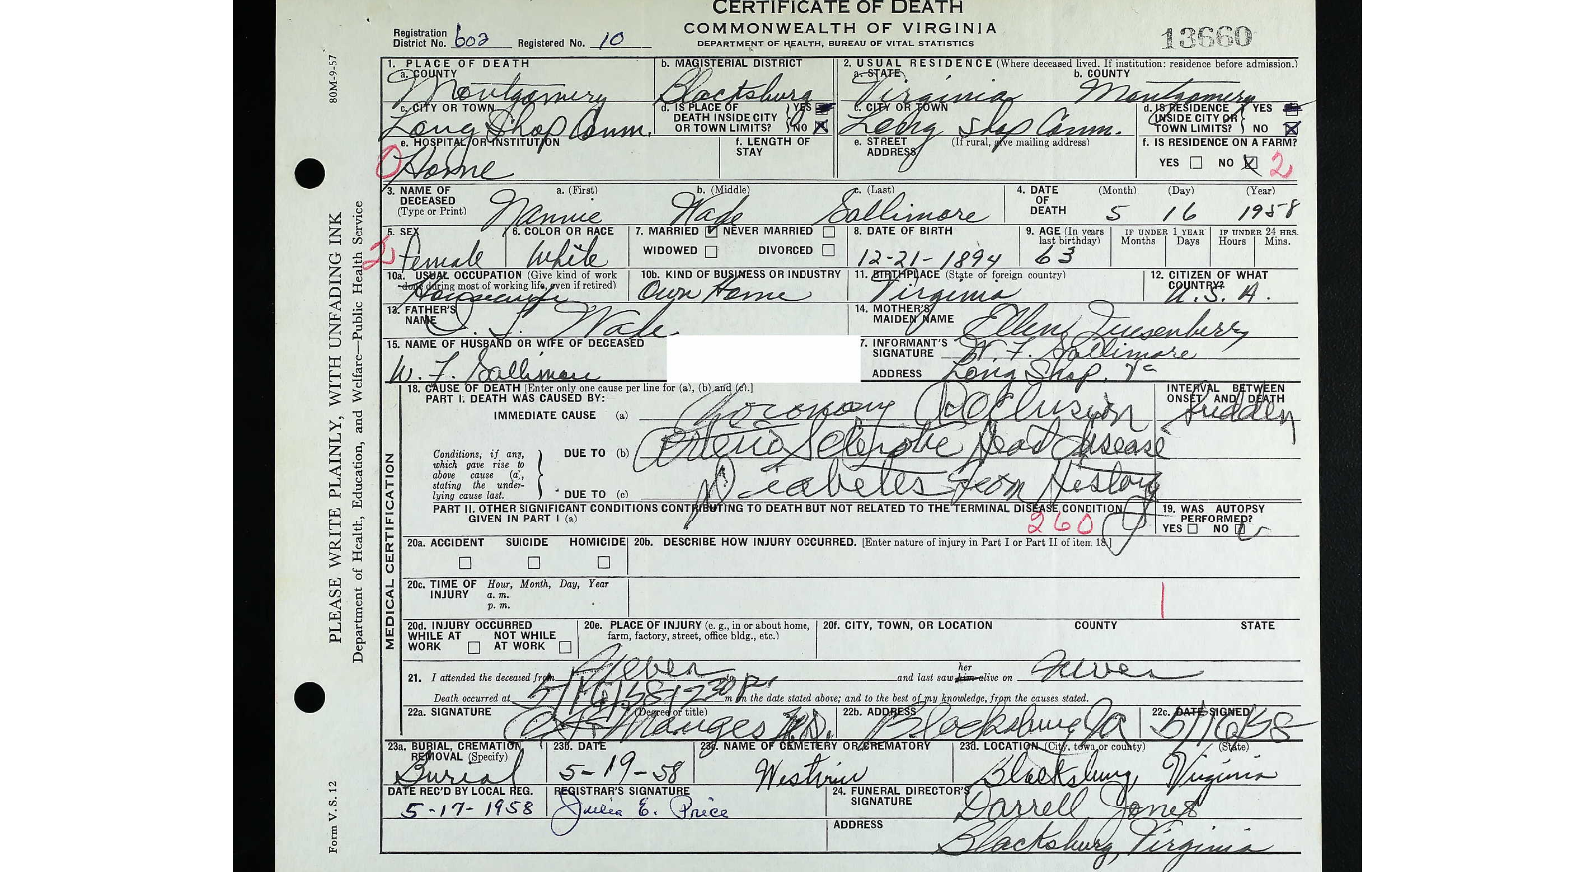 CERTIFICATE OF DEATH
COMMONWEALTH OF VIRGINIA
DEPARTMENT OF HEALTH, BUREAU OF VITAL STATISTICS
Registration District No. 602 Registered No. 10
13660
80M-9-57
PLEASE WRITE PLAINLY, WITH UNFADING INK
Department of Health, Education, and Welfare—Public Health Service
Form V. S. 12
1. PLACE OF DEATH
a. COUNTY Montgomery
b. MAGISTERIAL DISTRICT Blacksburg
2. USUAL RESIDENCE (Where deceased lived. If institution: residence before admission.)
a. STATE Virginia
b. COUNTY Montgomery
c. CITY OR TOWN Long Shop Comm.
d. IS PLACE OF DEATH INSIDE CITY OR TOWN LIMITS? YES NO
c. CITY OR TOWN Long Shop Comm.
d. IS RESIDENCE INSIDE CITY OR TOWN LIMITS? YES NO
e. HOSPITAL OR INSTITUTION Home
f. LENGTH OF STAY
e. STREET ADDRESS (If rural, give mailing address)
f. IS RESIDENCE ON A FARM? YES NO 2
3. NAME OF DECEASED (Type or Print)
a. (First) Nannie
b. (Middle) Wade
c. (Last) Sallimore
4. DATE OF DEATH (Month) (Day) (Year) 5 16 1958
5. SEX Female
6. COLOR OR RACE White
7. MARRIED NEVER MARRIED WIDOWED DIVORCED
8. DATE OF BIRTH 12-21-1894
9. AGE (In years last birthday) 63
IF UNDER 1 YEAR Months Days
IF UNDER 24 HRS. Hours Mins.
10a. USUAL OCCUPATION (Give kind of work done during most of working life, even if retired) Housewife
10b. KIND OF BUSINESS OR INDUSTRY Own Home
11. BIRTHPLACE (State of foreign country) Virginia
12. CITIZEN OF WHAT COUNTRY? U.S.A.
13. FATHER'S NAME Wade
14. MOTHER'S MAIDEN NAME Ellen Quesenberry
15. NAME OF HUSBAND OR WIFE OF DECEASED W. F. Sallimore
7. INFORMANT'S SIGNATURE W. F. Sallimore
ADDRESS Long Shop, Va
MEDICAL CERTIFICATION
18. CAUSE OF DEATH [Enter only one cause per line for (a), (b) and (c).]
PART I. DEATH WAS CAUSED BY:
IMMEDIATE CAUSE (a) Coronary Occlusion
INTERVAL BETWEEN ONSET AND DEATH sudden
Conditions, if any, which gave rise to above cause (a), stating the underlying cause last.
DUE TO (b) Arterio Sclerotic Heart Disease
DUE TO (c) Diabetes from History
PART II. OTHER SIGNIFICANT CONDITIONS CONTRIBUTING TO DEATH BUT NOT RELATED TO THE TERMINAL DISEASE CONDITION GIVEN IN PART I (a)
260
19. WAS AUTOPSY PERFORMED? YES NO
20a. ACCIDENT SUICIDE HOMICIDE
20b. DESCRIBE HOW INJURY OCCURRED. [Enter nature of injury in Part I or Part II of item 18.]
20c. TIME OF INJURY Hour, Month, Day, Year
a. m.
p. m.
20d. INJURY OCCURRED WHILE AT WORK NOT WHILE AT WORK
20e. PLACE OF INJURY (e. g., in or about home, farm, factory, street, office bldg., etc.)
20f. CITY, TOWN, OR LOCATION COUNTY STATE
21. I attended the deceased from Never and last saw her him alive on Never
Death occurred at 5/16/58 730 P. m on the date stated above; and to the best of my knowledge, from the causes stated.
22a. SIGNATURE (Degree or title) Manges M.D.
22b. ADDRESS Blacksburg Va
22c. DATE SIGNED 5/16/58
23a. BURIAL, CREMATION, REMOVAL (Specify) Burial
23b. DATE 5-19-58
23c. NAME OF CEMETERY OR CREMATORY Westview
23d. LOCATION (City, town or county) (State) Blacksburg, Virginia
DATE REC'D BY LOCAL REG. 5-17-1958
REGISTRAR'S SIGNATURE Julia E. Price
24. FUNERAL DIRECTOR'S SIGNATURE Darrell Jones
ADDRESS Blacksburg, Virginia